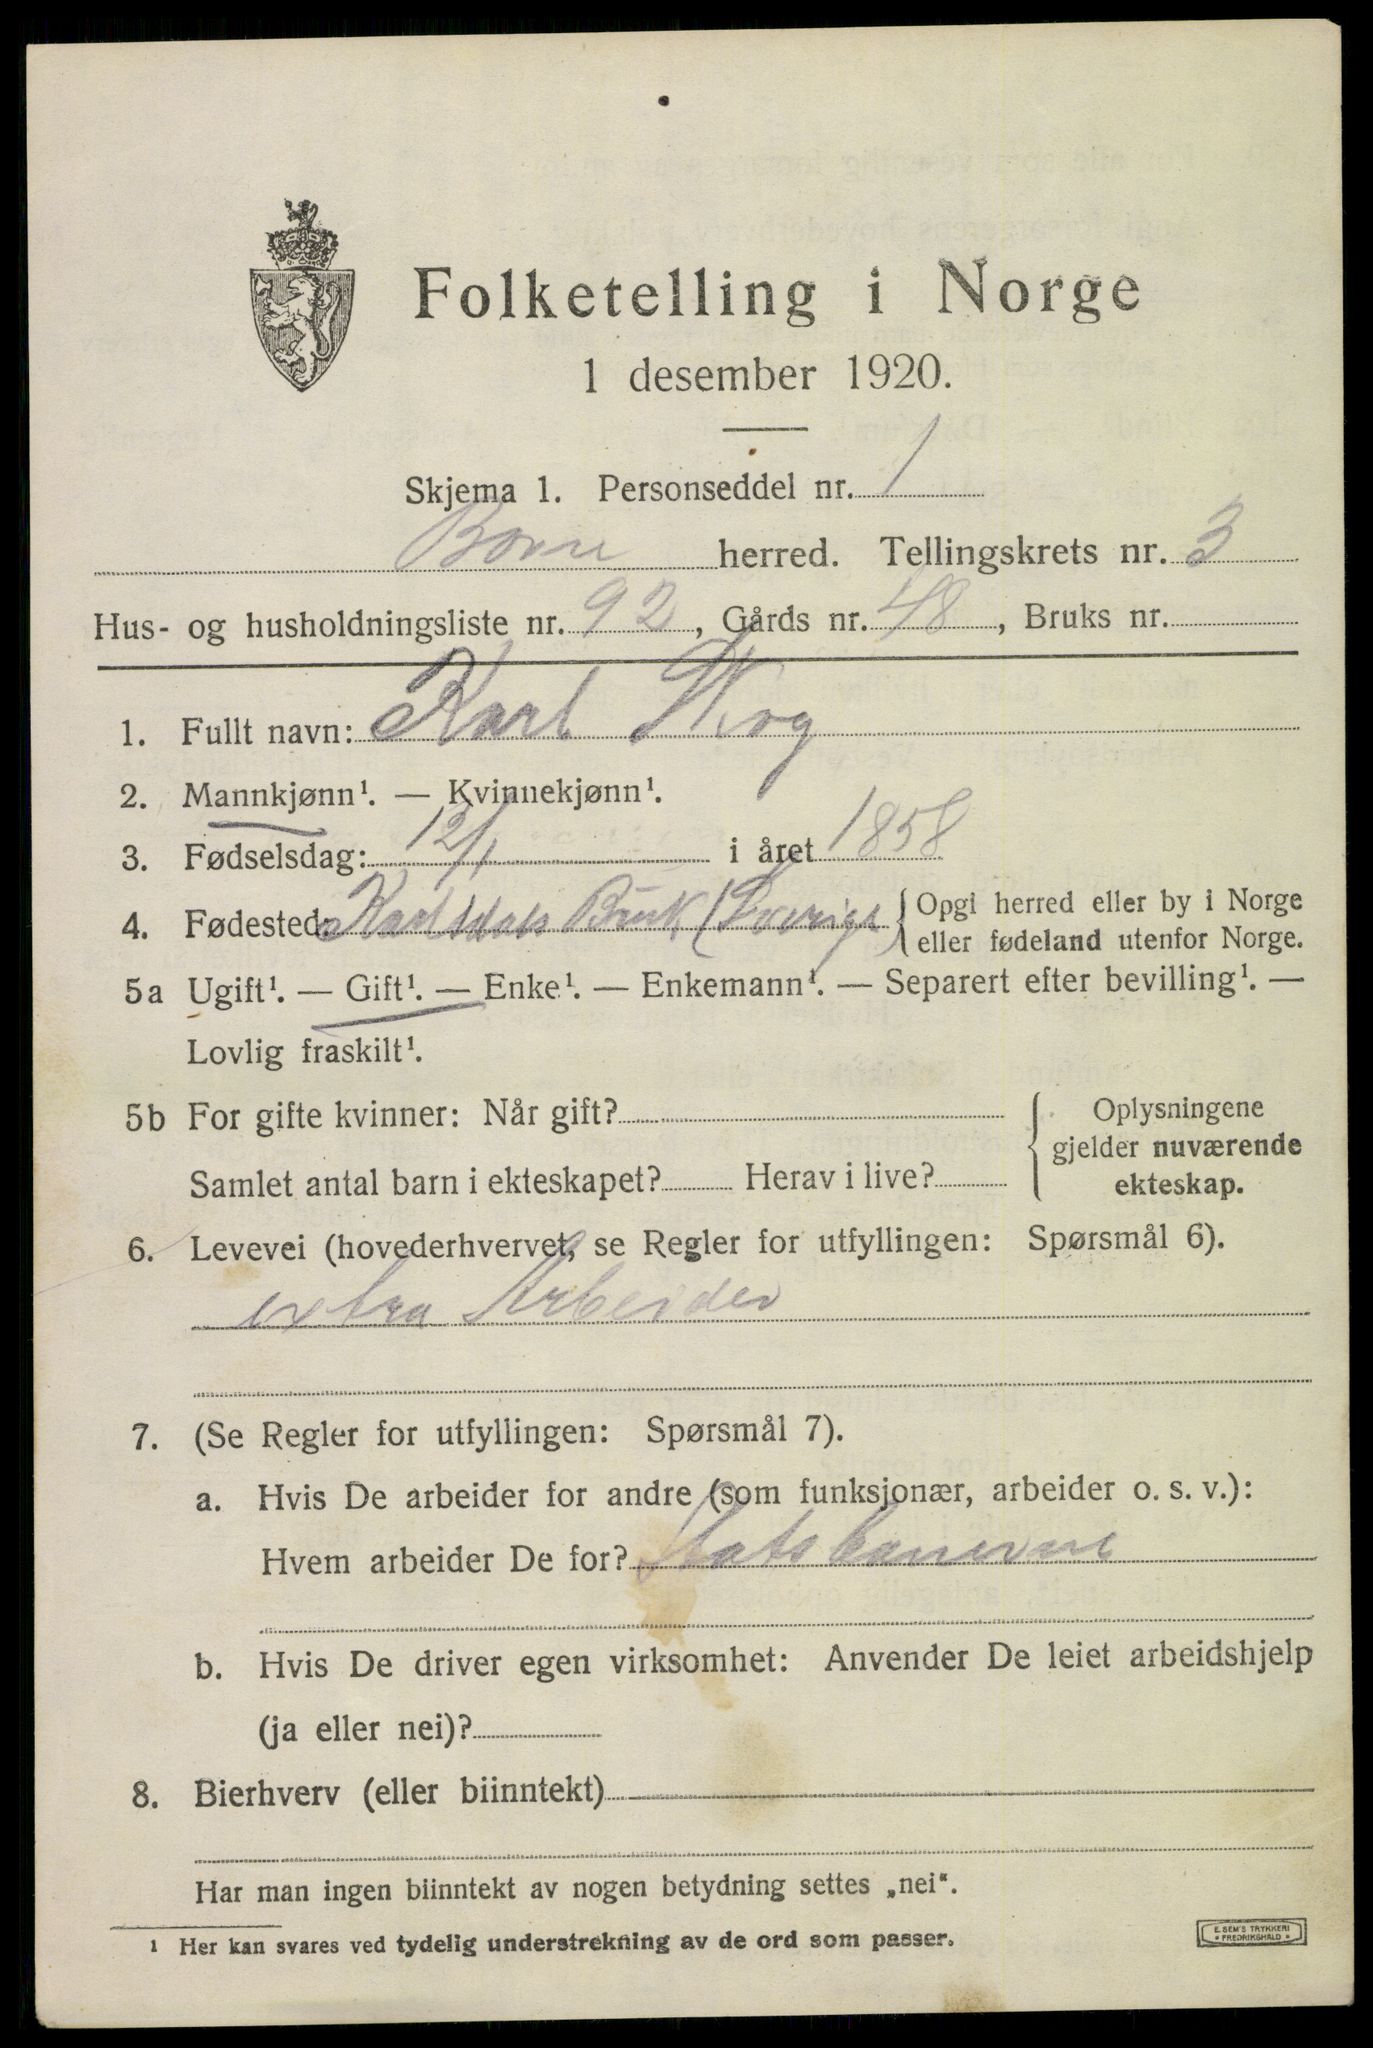 Folketelling i Norge
1 desember 1920.
Skjema 1. Personseddel nr. 1
Borre herred. Tellingskrets nr. 3
Hus- og husholdningsliste nr. 92, Gårds nr. 48, Bruks nr.
1. Fullt navn: Karl Skog
2. Mannkjønn¹. — Kvinnekjønn¹.
3. Fødselsdag: 12/1 i året 1858
4. Fødested: Karlsdals Bruk (Sverige) { Opgi herred eller by i Norge
eller fødeland utenfor Norge.
5a Ugift¹. — Gift¹. — Enke¹. — Enkemann¹. — Separert efter bevilling¹. —
Lovlig fraskilt¹.
5b For gifte kvinner: Når gift?
Samlet antal barn i ekteskapet? Herav i live?
Oplysningene
gjelder nuværende
ekteskap.
6. Levevei (hovederhvervet, se Regler for utfyllingen: Spørsmål 6).
extra Arbeider
7. (Se Regler for utfyllingen: Spørsmål 7).
a. Hvis De arbeider for andre (som funksjonær, arbeider o. s. v.):
Hvem arbeider De for? Statsbanerne
b. Hvis De driver egen virksomhet: Anvender De leiet arbeidshjelp
(ja eller nei)?
8. Bierhverv (eller biinntekt)
Har man ingen biinntekt av nogen betydning settes „nei“.
¹ Her kan svares ved tydelig understrekning av de ord som passer.
E. SEM'S TRYKKERI
* FREDRIKSHALD *